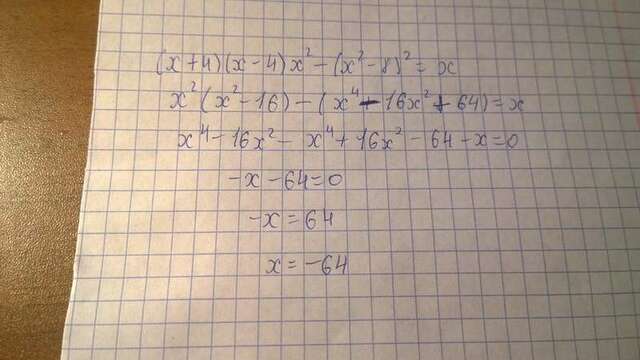 (x+4)(x-4)x²-(x²-8)²=x
x²(x²-16)-(x⁴-16x²+64)=x
x⁴-16x²-x⁴+16x²-64-x=0
-x-64=0
-x=64
x=-64